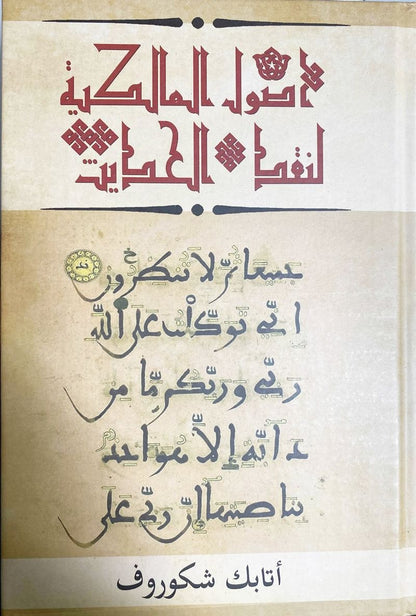 أصول المالكية
لنقد الحديث
جميعا ثم لا تنظرون
انى توكلت على الله
ربى وربكم ما من
دابة إلا هو اخذ
بناصيتها إن ربى على
أتابك شكوروف